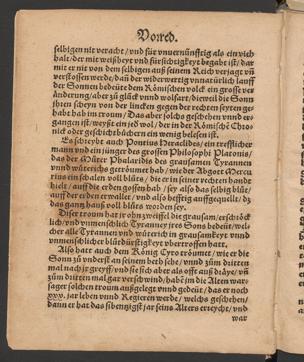 Vorred.
selbigen nit veracht / vnd für vnuernünfftig als ein vieh
halt / der mit weißheyt vnd fürsichtigkeyt begabt ist / dar
mit er nit von dem selbigen auß seinem Reich verjagt vñ
verstossen werde / dañ der widerwertig vnnatürlich lauff
der Sonnen bedeüte dem Römischen volck ein grosse ver
änderung / aber zu glück vnnd wolfart / dieweil die Sonn
jhren scheyn von der lincken gegen der rechten seyten ge
habt hab im troum / Das aber solchs geschehen vnnd er-
gangen ist / weyßt ein jed wol / der in der Römische Chro
nick oder geschichtbüchern ein wenig belesen ist.
Es schreybt auch Pontius Heraclides / ein trefflicher
mann vnd ein jünger des grossen Philosophi Platonis /
das der Müter Phalaridis des grausamen Tyrannen
vnnd wüterichs getrömmet hab / wie der Abgott Mercu
rius ein schalen voll blüts / die er in seiner rechten hande
hielt / auff die erden gossen hab / sey also das selbig blüt /
auff der erden erwallet / vnd also hefftig auffgequelle / dz
das gantz hauß voll blüts worden sey.
Diser troum hat jr ohn zweiffel die grausam / erschröck
lich / vnd vnmenschlich Tyranney jres Sons bedeüt / wel-
cher alle Tyrannen vnd wüterich in grausamkeyt vnnd
vnmenschlicher blütdürstigkeyt vbertroffen hatt.
Also hatt auch dem König Cyro tröumet / wie er die
Sonn zu vnderst an seinem beth sehe / vnnd zum dritten
mal nach jr greyff / vnd sie sich aber als offt auß dräye / vñ
zum dritten mal gar verschwind / hab jm die Alten war-
sager solchen troum außgelegt vnnd gedeüt / das er noch
xxx. jar leben vnnd Regieren werde / welchs geschehen /
dann er hat das sibentzigst jar seins Alters erreycht / vnd
war